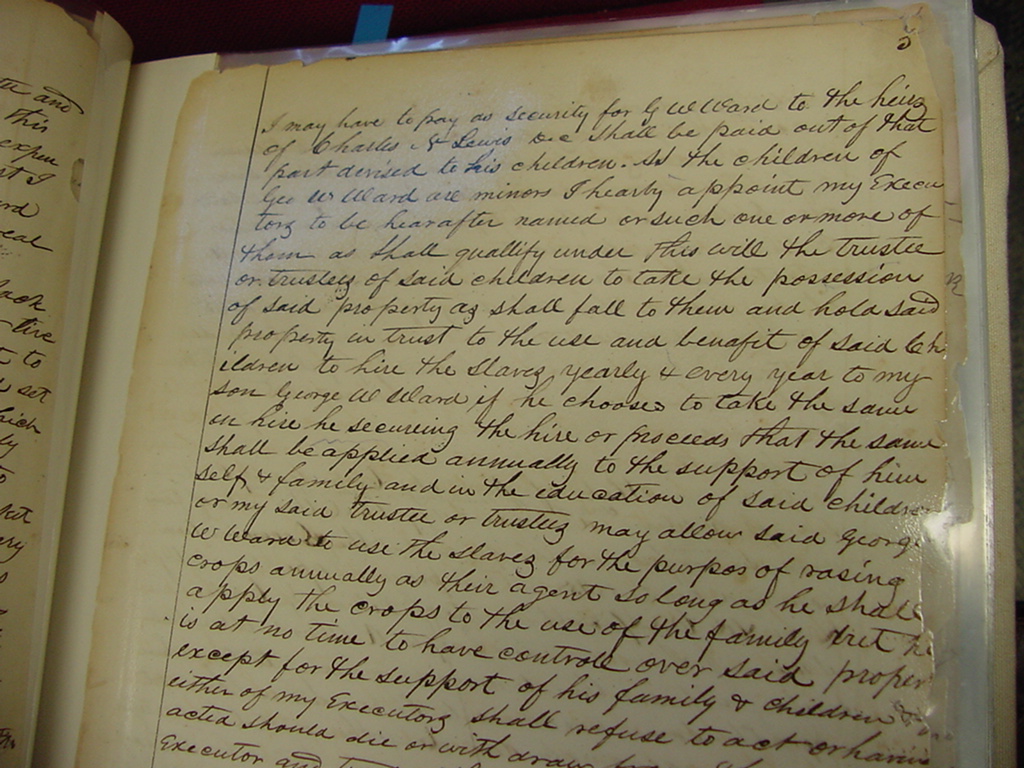 th and
this
expen
st I
rd
real
Jack
tire
t to
set
hich
ly
to
put
ery
5
I may have to pay as security for G W Ward to the heirs
of Charles N Lewis Dec shall be paid out of that
part devised to his children. As the children of
Geo W Ward are minors I hearby appoint my Execu
tors to be hearafter named or such one or more of
them as shall quallify under this will the trustee
or trustees of said children to take the possession
of said property as shall fall to them and hold said
property in trust to the use and benafit of said Ch
ildren to hire the slaves yearly & every year to my
son George W Ward if he chooses to take the same
on hire he secureing the hire or proceeds that the same
shall be applied annually to the support of him
self & family and in the education of said childre
or my said trustee or trustees may allow said George
W Ward to use the slaves for the purpos of rasing
crops annually as their agent so long as he shall
apply the crops to the use of the family but he
is at no time to have controll over said proper
except for the support of his family & children &
either of my Executors shall refuse to act or having
acted should die or with draw
Executor and